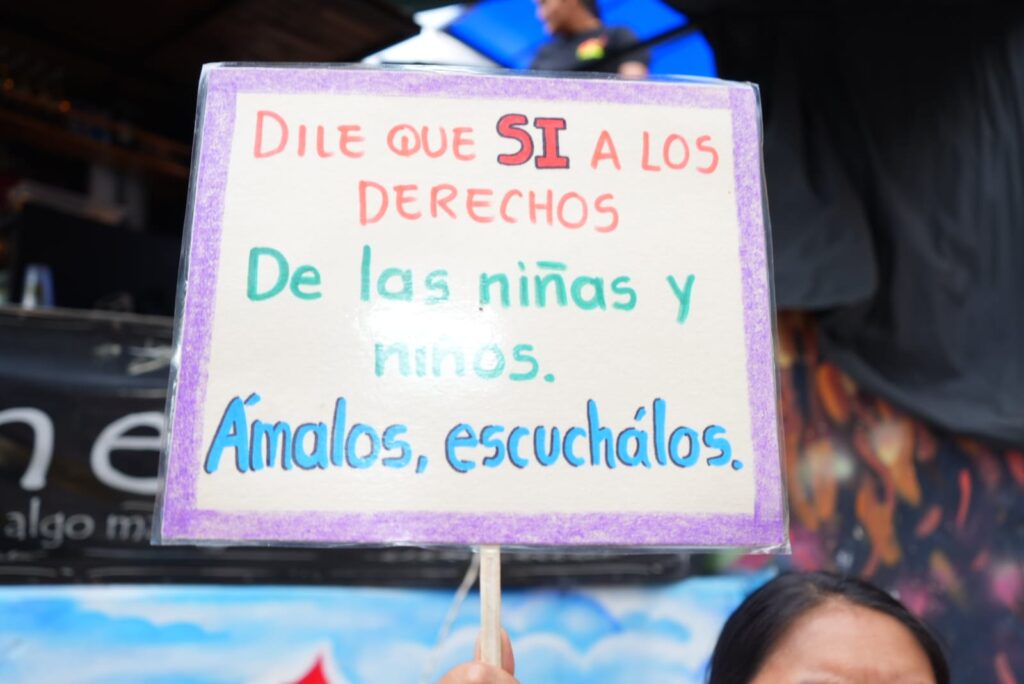 DILE QUE SI A LOS
DERECHOS
De las niñas y
niños.
Ámalos, escuchálos.
ne
algo m